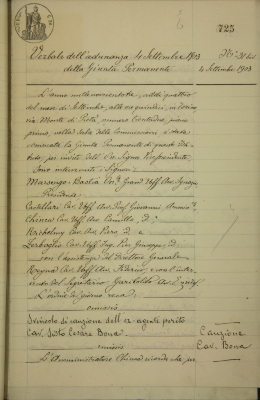 723
Verbale dell'adunanza 4 Settembre 1903
della Giunta Permanente
4 Settembre 1903
L'anno millenovecentotre, addì quattro
del mese di Settembre, alle ore quindici, in Torino
via Monte di Pietà, numero trentadue, piano
primo, nella sala delle Commissioni è stata
convocata la Giunta Permanente di questo
per invito dell' Ill. Signor Presidente.
Sono intervenuti i Signori:
Marsengo Bastia Ign. Grand' Uff. Avv. Ignazio
Presidente
Castellari Cav. Uff. Avv. Prof. Giovanni
Chiesa Cav. Uff. Avv. Camillo
Cav. Avv. Piero
Cav. Uff. Ing. Pio Giuseppe
con l'assistenza del Direttore Generale
Cav. Uff. Avv. e con l'inter
vento del Segretario Garibaldi Avv.
L'ordine del giorno reca:
omissis
Svincolo di cauzione dell' ex-agente perito
Cav. Sisto Cesare Bona
Cauzione
Cav. Bona
omissis
L'Amministratore Chiesa ricorda che, per